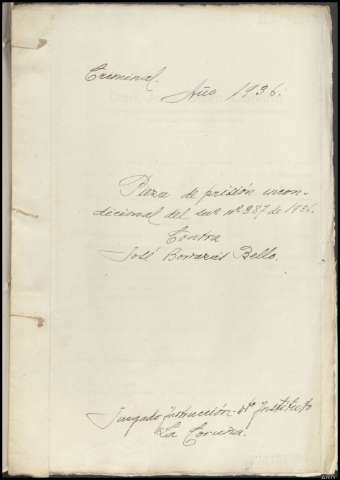 Criminal.
Año 1936.
Pieza de prisión incon-
dicional del sur nº 387 de 1936.
Contra
José Borrazás Bello.
Juzgado Instrucción Instituto
La Coruña.